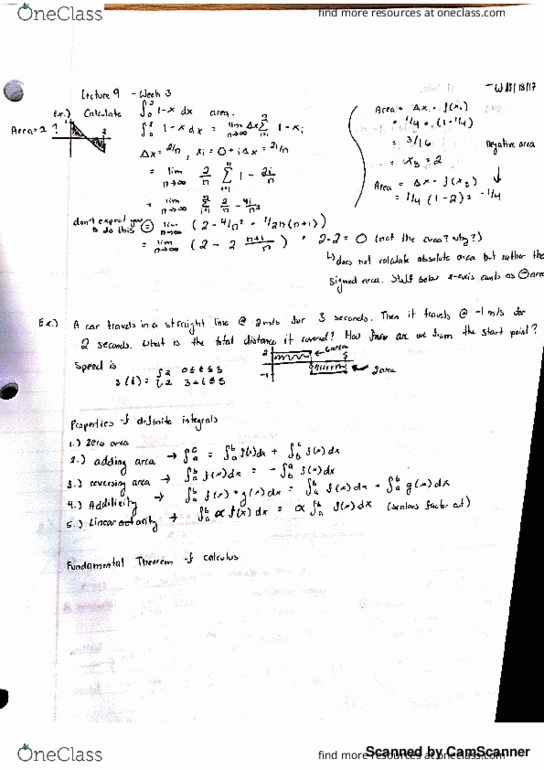 OneClass
find more resources at oneclass.com
Lecture 9 - Week 3
Ex.) Calculate ∫₀² 1-x dx area.
Area = Δx · f(x₁)
Area=2?
∫₀² 1-x dx = lim n→∞ Δx Σ 1-xᵢ
= 1/4 · (1-1/4)
Δx = 2/n, xᵢ = 0+iΔx = 2i/n
= 3/16
negative area
= lim n→∞ 2/n Σ i=1 n 1 - 2i/n
= x₃ = 2
Area = Δx · f(x₃)
= 1/4 (1-2) = -1/4
= lim n→∞ Σ i=1 n 2/n - 4i/n²
don't expect you to do this
= lim n→∞ (2 - 4/n² · 1/2n(n+1))
= lim n→∞ (2 - 2 n+1/n) = 2-2 = 0 (not the area? why?)
↳ does not calculate absolute area but rather the
signed area. Stuff below x-axis counts as ⊖area
Ex.) A car travels in a straight line @ 2m/s for 3 seconds. Then it travels @ -1 m/s for
2 seconds. What is the total distance it covered? How far are we from the start point?
Speed is
2
← 6 area
5
-1
← 2 area
Properties of definite integrals
1.) Zero area
2.) adding area → ∫ₐᶜ = ∫ₐᵇ f(x)dx + ∫ᵇᶜ f(x)dx
3.) reversing area → ∫ₐᵇ f(x)dx = - ∫ᵇₐ f(x)dx
4.) Additivity → ∫ₐᵇ f(x) + g(x) dx = ∫ₐᵇ f(x) dx + ∫ₐᵇ g(x) dx
→ ∫ₐᵇ α f(x) dx = α ∫ₐᵇ f(x) dx (scalars factor out)
Fundamental Theorem of calculus
Scanned by CamScanner
OneClass
find more resources at oneclass.com